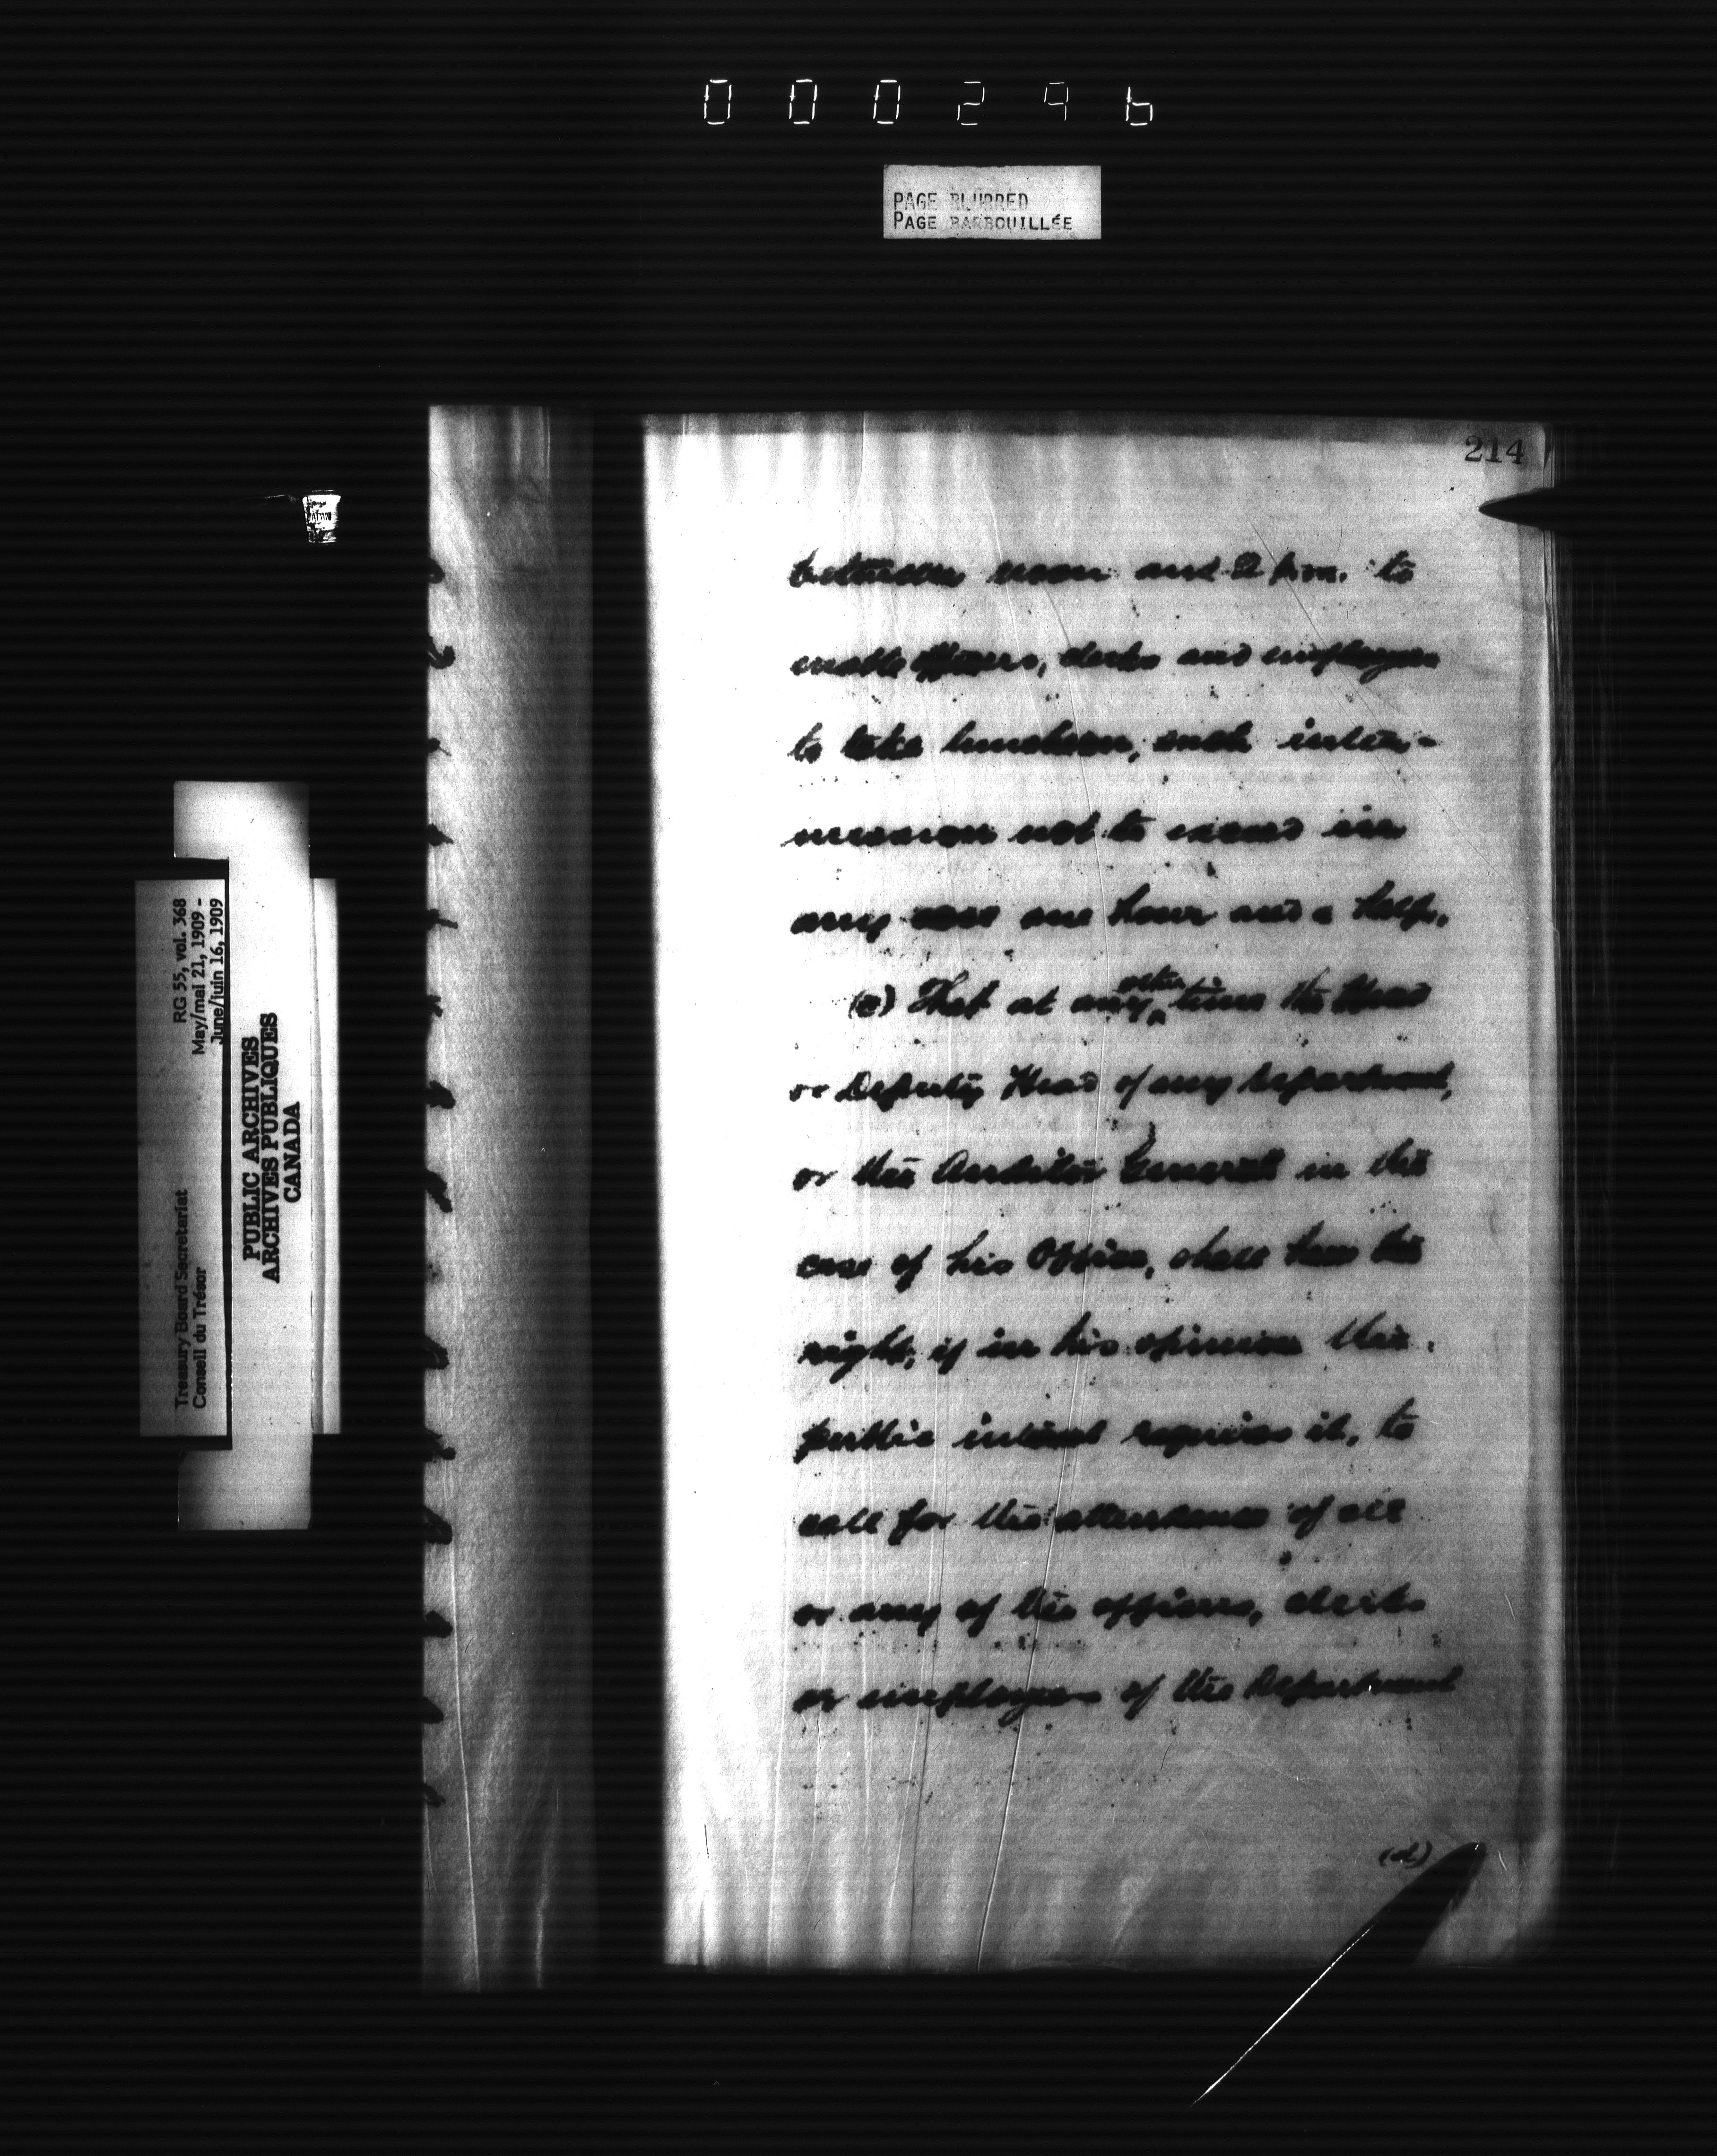 000296
PAGE BLURRED
PAGE BARBOUILLÉE
214
between noon and 2 p.m. to
enable officers, clerks and employees
to take luncheon, such inter-
mission not to exceed in
any case one hour and a half.
(c) That at any other time the Head
or Deputy Head of any Department,
or the Auditor General in the
case of his Office, shall have the
right, if in his opinion the
public interest requires it, to
call for the attendance of all
or any of the officers, clerks
or employees of the Department
(d)
RG 55, vol. 368
May/mai 21, 1909 -
June/juin 16, 1909
Treasury Board Secretariat
Conseil du Trésor
PUBLIC ARCHIVES
ARCHIVES PUBLIQUES
CANADA